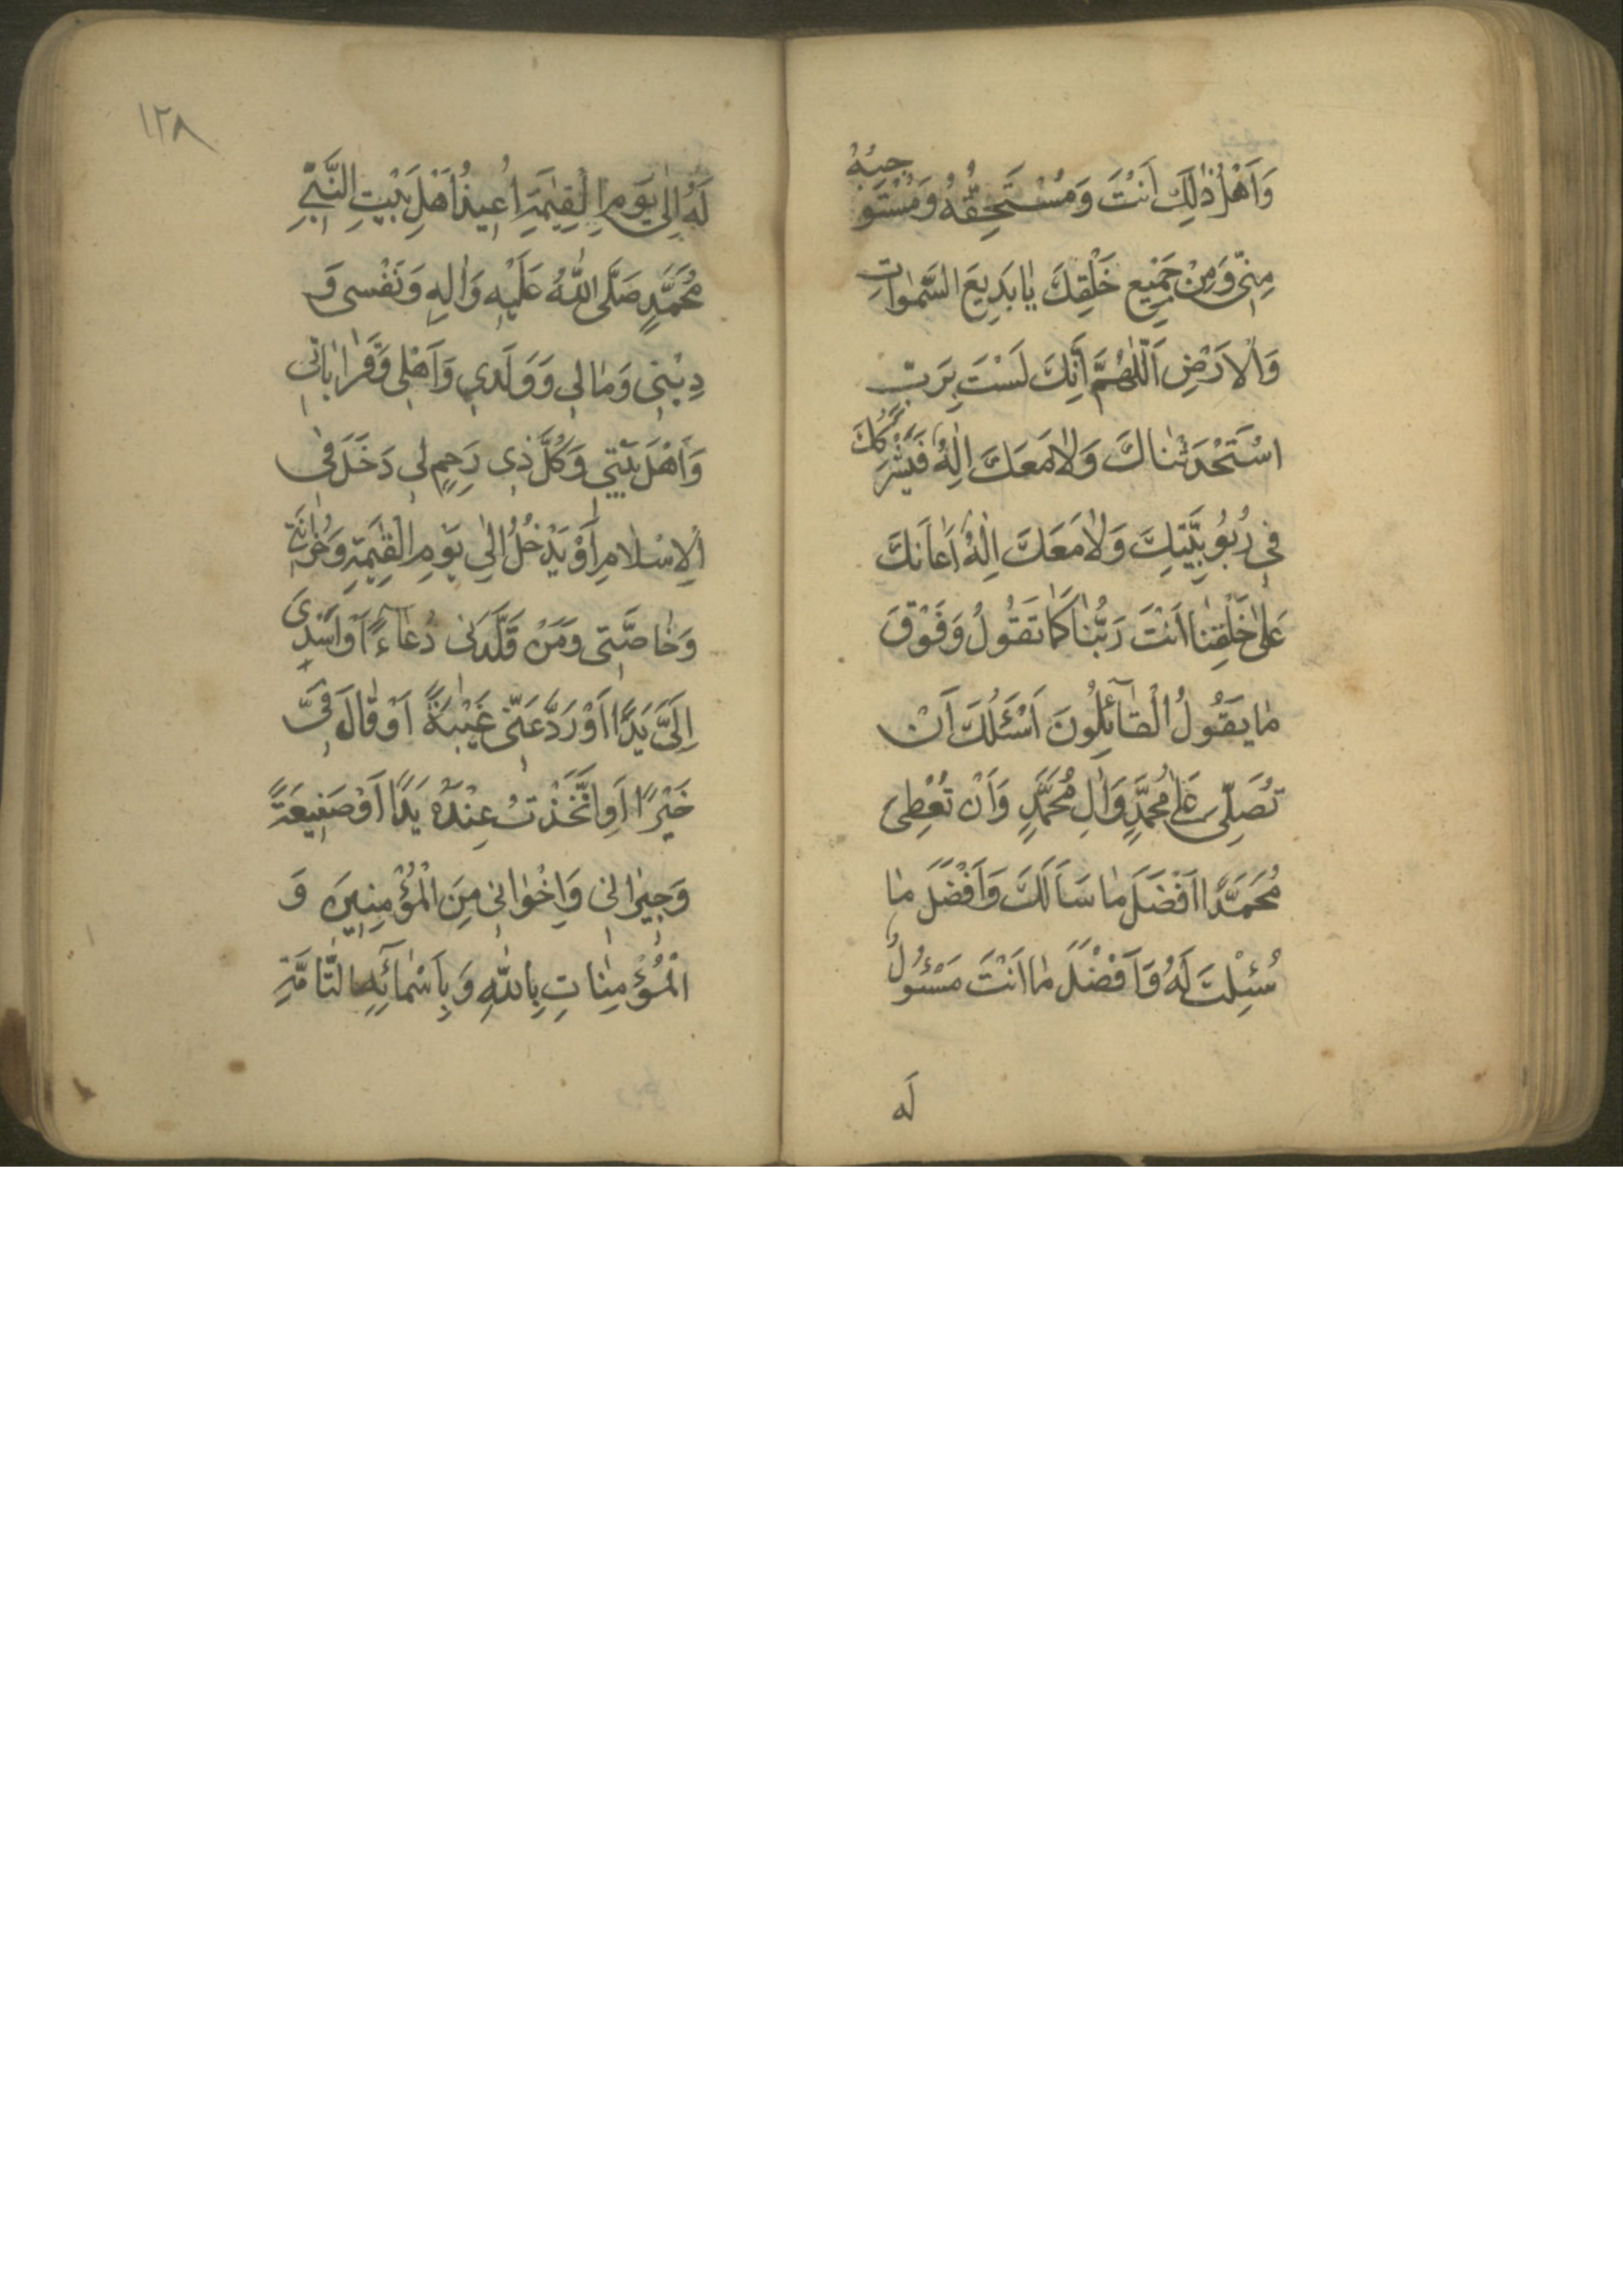 وَاَهْلُ ذٰلِكَ اَنْتَ وَمُسْتَحِقُّهُ وَمُسْتَوْجِبُهُ
مِنّى وَمِنْ جَمِيْعِ خَلْقِكَ يٰا بَدِيعَ السَّمٰواتِ
وَالْاَرَضِ اَللّٰهُمَّ اَنَّكَ لَسْتَ بِرَبٍّ
اسْتَحْدَثْنٰاكَ وَلٰا مَعَكَ اِلٰهٌ فَيَشْرَكُكَ
فى رُبُوُبِيَّتِكَ وَلٰا مَعَكَ اِلٰهٌ اَعٰانَكَ
عَلىٰ خَلْقِنٰا اَنْتَ رَبُّنٰا كَمٰا تَقُولُ وَفَوْقَ
مٰا يَقُولُ الْقٰآئِلُونَ اَسْئَلُكَ اَنْ
تُصَلِّىَ عَلىٰ مُحَمَّدٍ وَاٰلِ مُحَمَّدٍ وَاَنْ تُعْطِىَ
مُحَمَّدًا اَفْضَلَ مٰا سَاَلَكَ وَاَفْضَلَ مٰا
سُئِلْتَ لَهُ وَاَفْضَلَ مٰا اَنْتَ مَسْئوُلٌ
لَه
١٢٨
لَهُ اِلىٰ يَوَمِ الْقِيٰمَةِ اُعِيذُ اَهْلَ بَيْتِ النَّبِىِّ
مُحَمَّدٍ صَلَّى اللّٰهُ عَلَيْهِ وَاٰلِهِ وَنَفْسى وَ
دِيْنى وَمٰالى وَوَلَدى وَاَهْلى وَقَرٰابٰاتى
وَاَهْلَ بَيْتى وَكُلَّ ذى رَحِمٍ لى دَخَلَ فى
الْاِسْلامِ اَوْ يَدْخُلُ اِلىٰ يَوْمِ الْقِيٰمَةِ وَحُزٰانَتى
وَخٰاصَّتى وَمَنْ قَلَّدَنى دُعٰآءً اَوْ اَسْدىٰ
اِلَىَّ يَدًا اَوْ رَدَّ عَنّى غَيْبَةً اَوْ قٰالَ فِىَّ
خَيْرًا اَوِ اتَّخَذْتُ عِنْدَهُ يَدًا اَوْ صَنِيعَةً
وَجيٰرانى وَاِخْوٰانى مِنَ الْمُؤْمِنينَ وَ
الْمُؤْمِنٰاتِ بِاللّٰهِ وَبِاَسْمٰائِهِ التّٰآمَّةِ